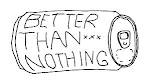 BETTER
THAN***
NOTHING